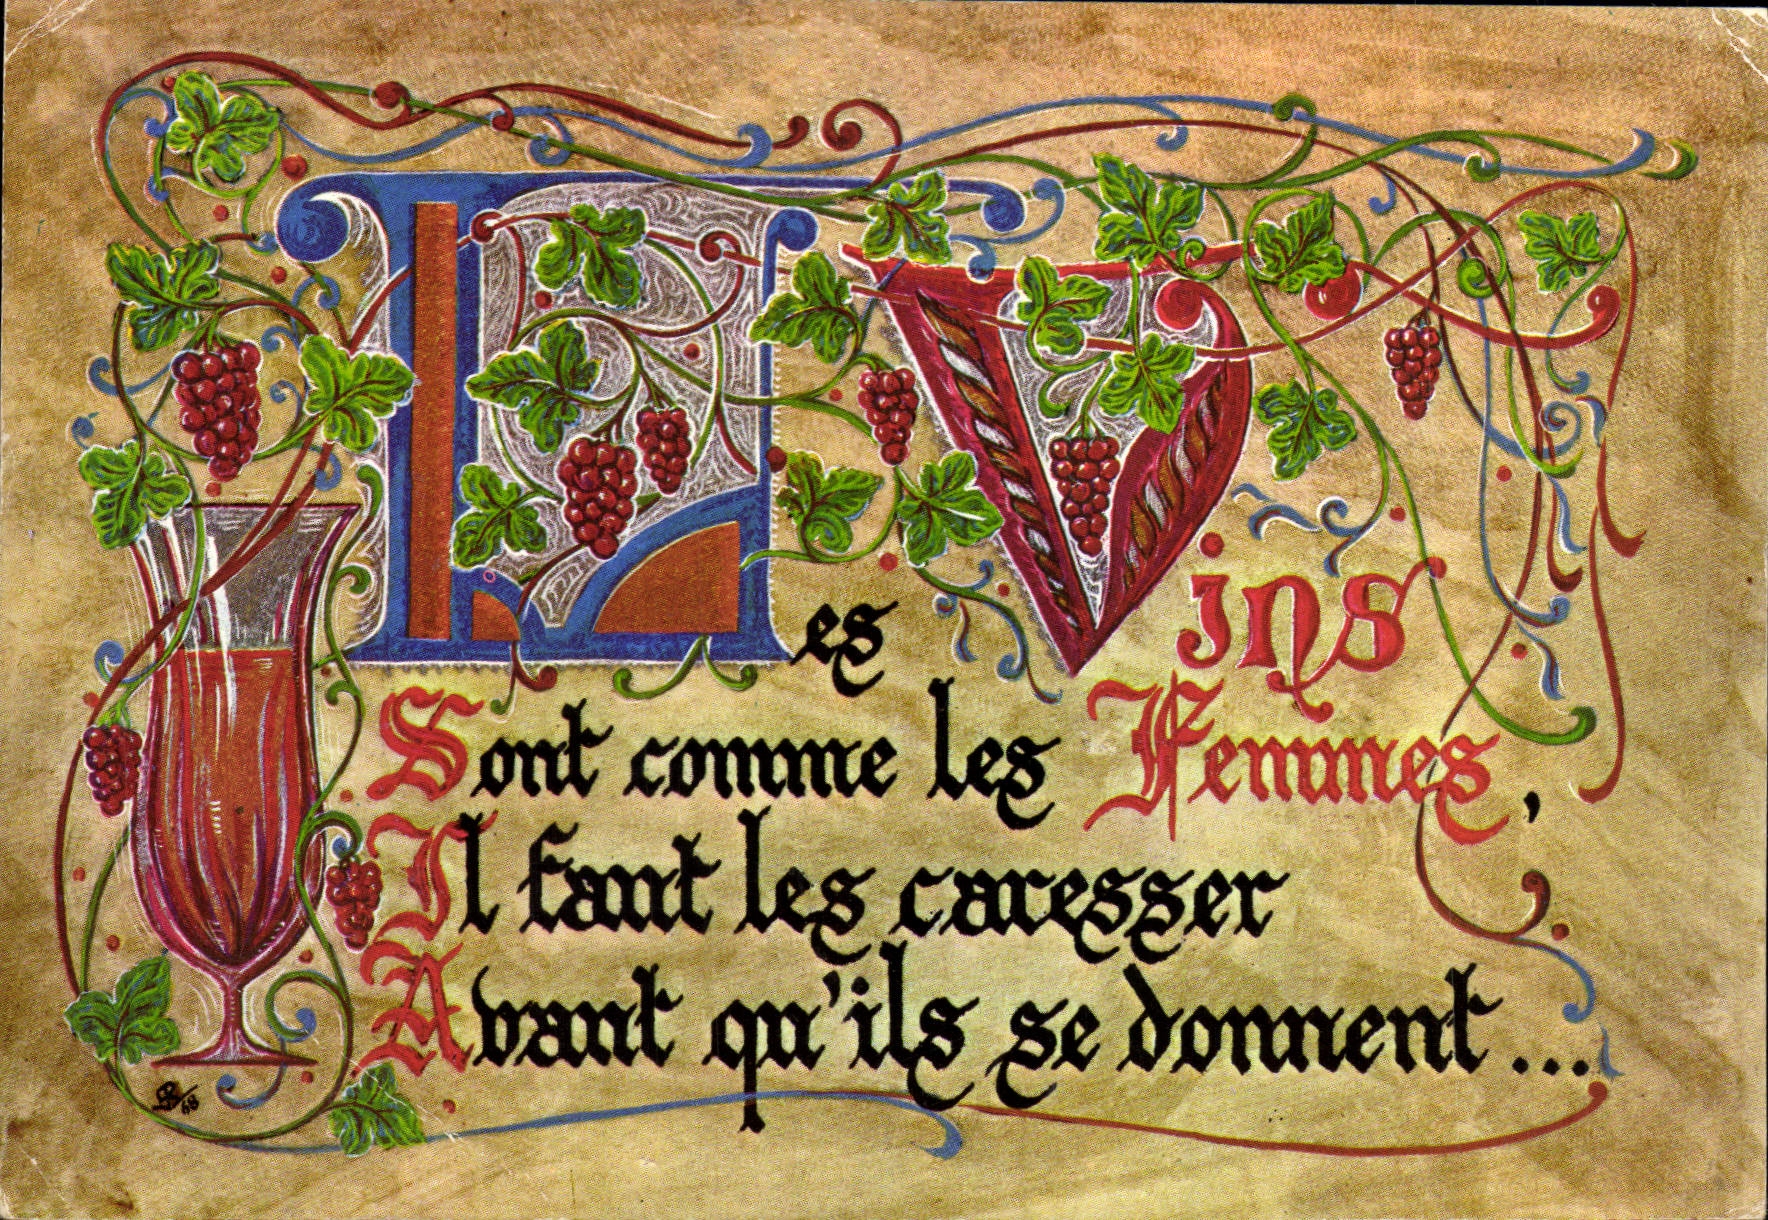 Les Vins
Sont comme les Femmes,
Il faut les caresser
Avant qu'ils se donnent...
68